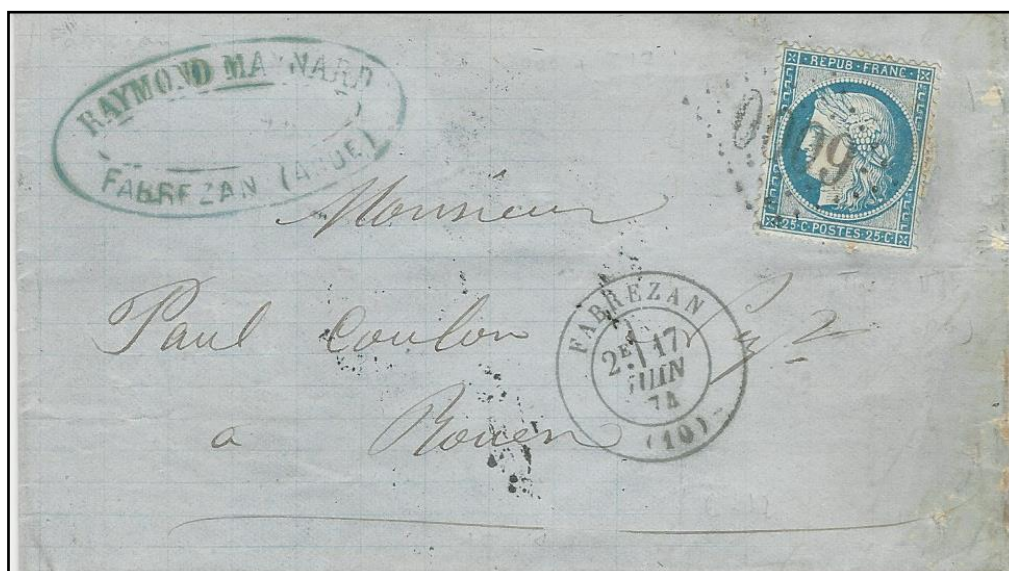 RAYMOND MAYNARD
FABREZAN (AUDE)
REPUB·FRANC·
25·C·POSTES·25·C·
Monsieur
Paul Coulon
a Rouen
FABREZAN
2E 17
JUIN
74
(10)